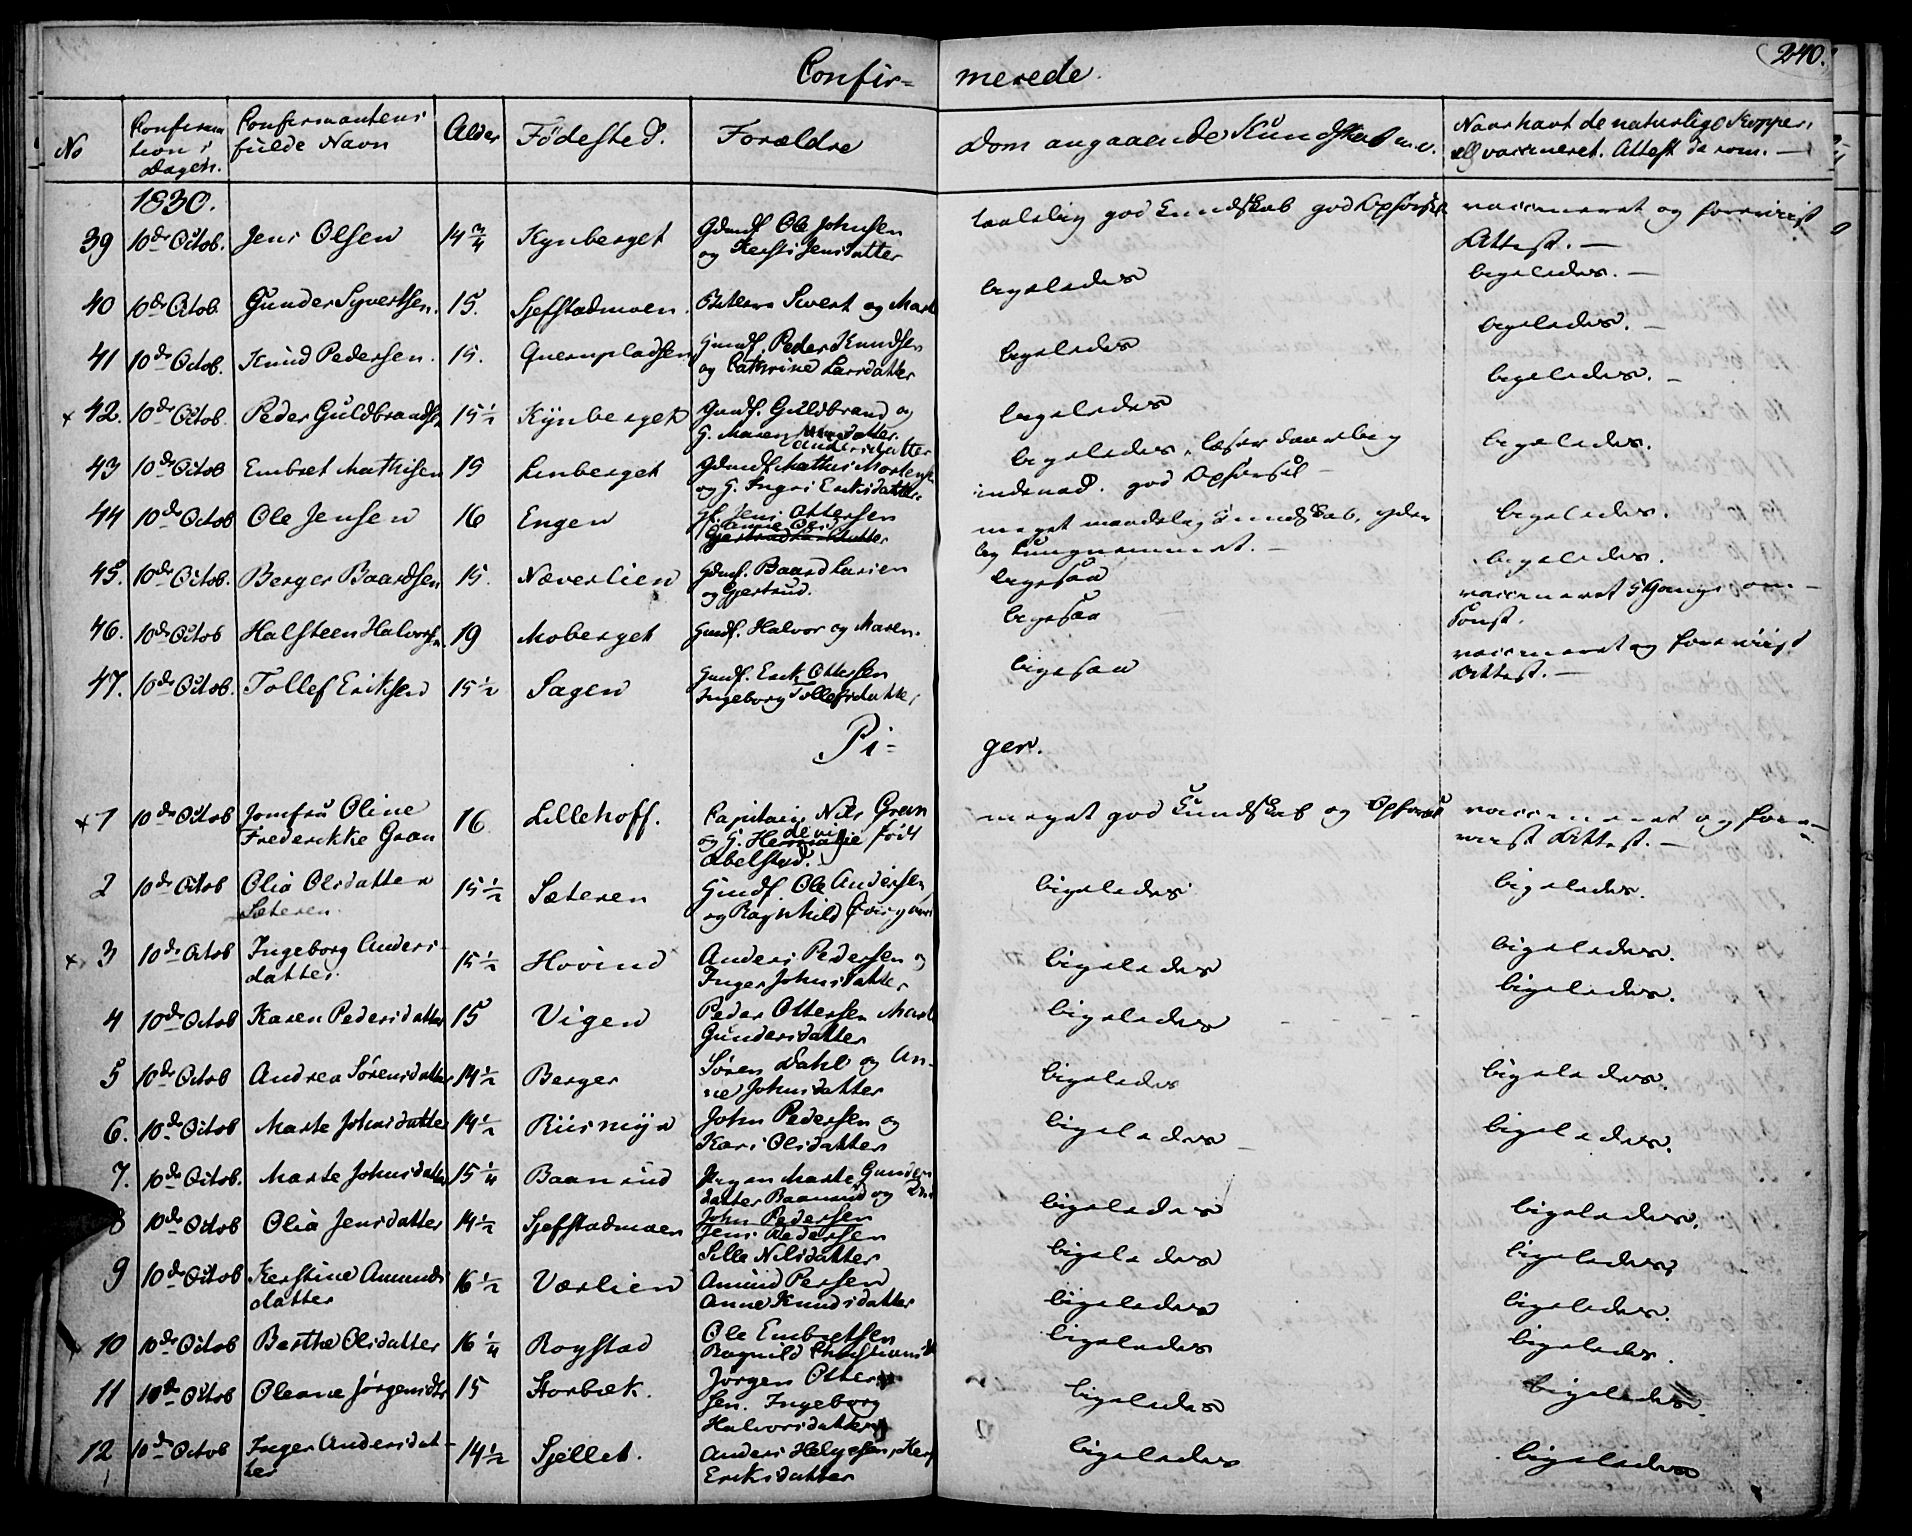 240.
Confir= merede.
No Confirmationsdagen. Confirmantens fulde Navn Alder Fødested. Forældre Dom angaaende Kundskab m.v. Naar havt de naturlige Kopper, ell vaccineret. Attest derom.
1830.
39 10de Octob. Jens Olsen 14 3/4 Kynberget Gdmd. Ole Johnsen og Kersti Jensdatter taalelig god Kundskab god Opførsel vaccineret og foreviist Attest.
40 10de Octob Gunder Syvertsen. 15. Sjefstadmoen. Sivert og Marte ligeledes ligeledes.
41 10de Octob. Knud Pedersen. 15. Quernpladsen Gmdf. Peder Knudsen og Cathrine Larsdatter ligeledes ligeledes.
x 42. 10de Octob. Peder Guldbrandsen 15 1/2 Kynberget Gmdf. Guldbrand og G. Maren Andersdatter ligeledes ligeledes.
43 10de Octob Embret Mathisen 15 Linberget Gdmdf. Mathis Mortensen og G. Ingri Eriksdatter. ligeledes, læser daarlig indenad. god Opførsel ligeledes.
44 10de Octob Ole Jensen 16 Engen Gf. Jens Ottersen Anne Olsd meget maadelig Kundskab, tungnemmet. ligeledes.
45. 10de Octob. Berger Baardsen 15. Næverlien Gdmf. Baard Larsen og Gjertrud. ligesaa ligeledes.
46. 10de Octob Halsteen Halvorsen. 19 Moberget Gmdf. Halvor og Maren. ligesaa vaccineret 5 Gange omsonst.
47. 10de Octob. Tollef Eriksen 15 1/2 Sagen Gmdf. Erik Ottersen Ingeborg Tollefsdatter ligesaa vaccineret og foreviist Attest.
Pi= ger.
x 1 10de Octob Jomfru Oline Frederikke Gran 16 Lillehoff. Capitain Nils Gran og G. Hedevig født Abelsted. meget god Kundskab og Opførsel vaccineret og foreviist Attest.
2 10de Octob Olia Olsdatter Sæteren 15 1/2 Sæteren Gmdf. Ole Andersen og Ragnhild ligeledes ligeledes.
x 3 10de Octob Ingeborg Andersdatter. 15 1/2 Hovind Anders Pedersen og Inger Johnsdatter ligeledes ligeledes.
4 10de Octob Karen Pedersdatter 15 Vigen Peder Ottersen Marte Gundersdatter ligeledes ligeledes.
5 10de Octob Andrea Sørensdatter 14 1/2 Berger Søren Dahl og Anne Johnsdatter ligeledes ligeledes.
6. 10de Octob Marte Johnsdatter 14 1/2 Riismyr John Pedersen og Kari Olsdatter ligeledes ligeledes.
7. 10de Octob. Marte Johnsdatter 15 1/4 Baanrud Pigen Marte Gundersdatter Baanrud og John Pedersen ligeledes ligeledes.
8 10de Octob Olia Jensdatter 14 1/2 Sjefstadmoen Jens Pedersen Sille Nilsdatter ligeledes ligeledes,
9 10de Octob Kerstine Amundsdatter 16 1/2 Værlien Amund Persen Anne Knudsdatter ligeledes ligeledes.
10 10de Octob Berthe Olsdatter 16 1/4 Rogstad Ole Embretsen Ragnild Christiansd ligeledes ligeledes.
11 10de Octob Oleane Jørgensdtr 15 Storbæk. Jørgen Ottersen. Ingeborg Halvorsdatter ligeledes ligeledes.
12 10de Octob Inger Andersdatter 14 1/2 Sjellet. Anders Helgesen, Eriksdatter ligeledes ligeledes